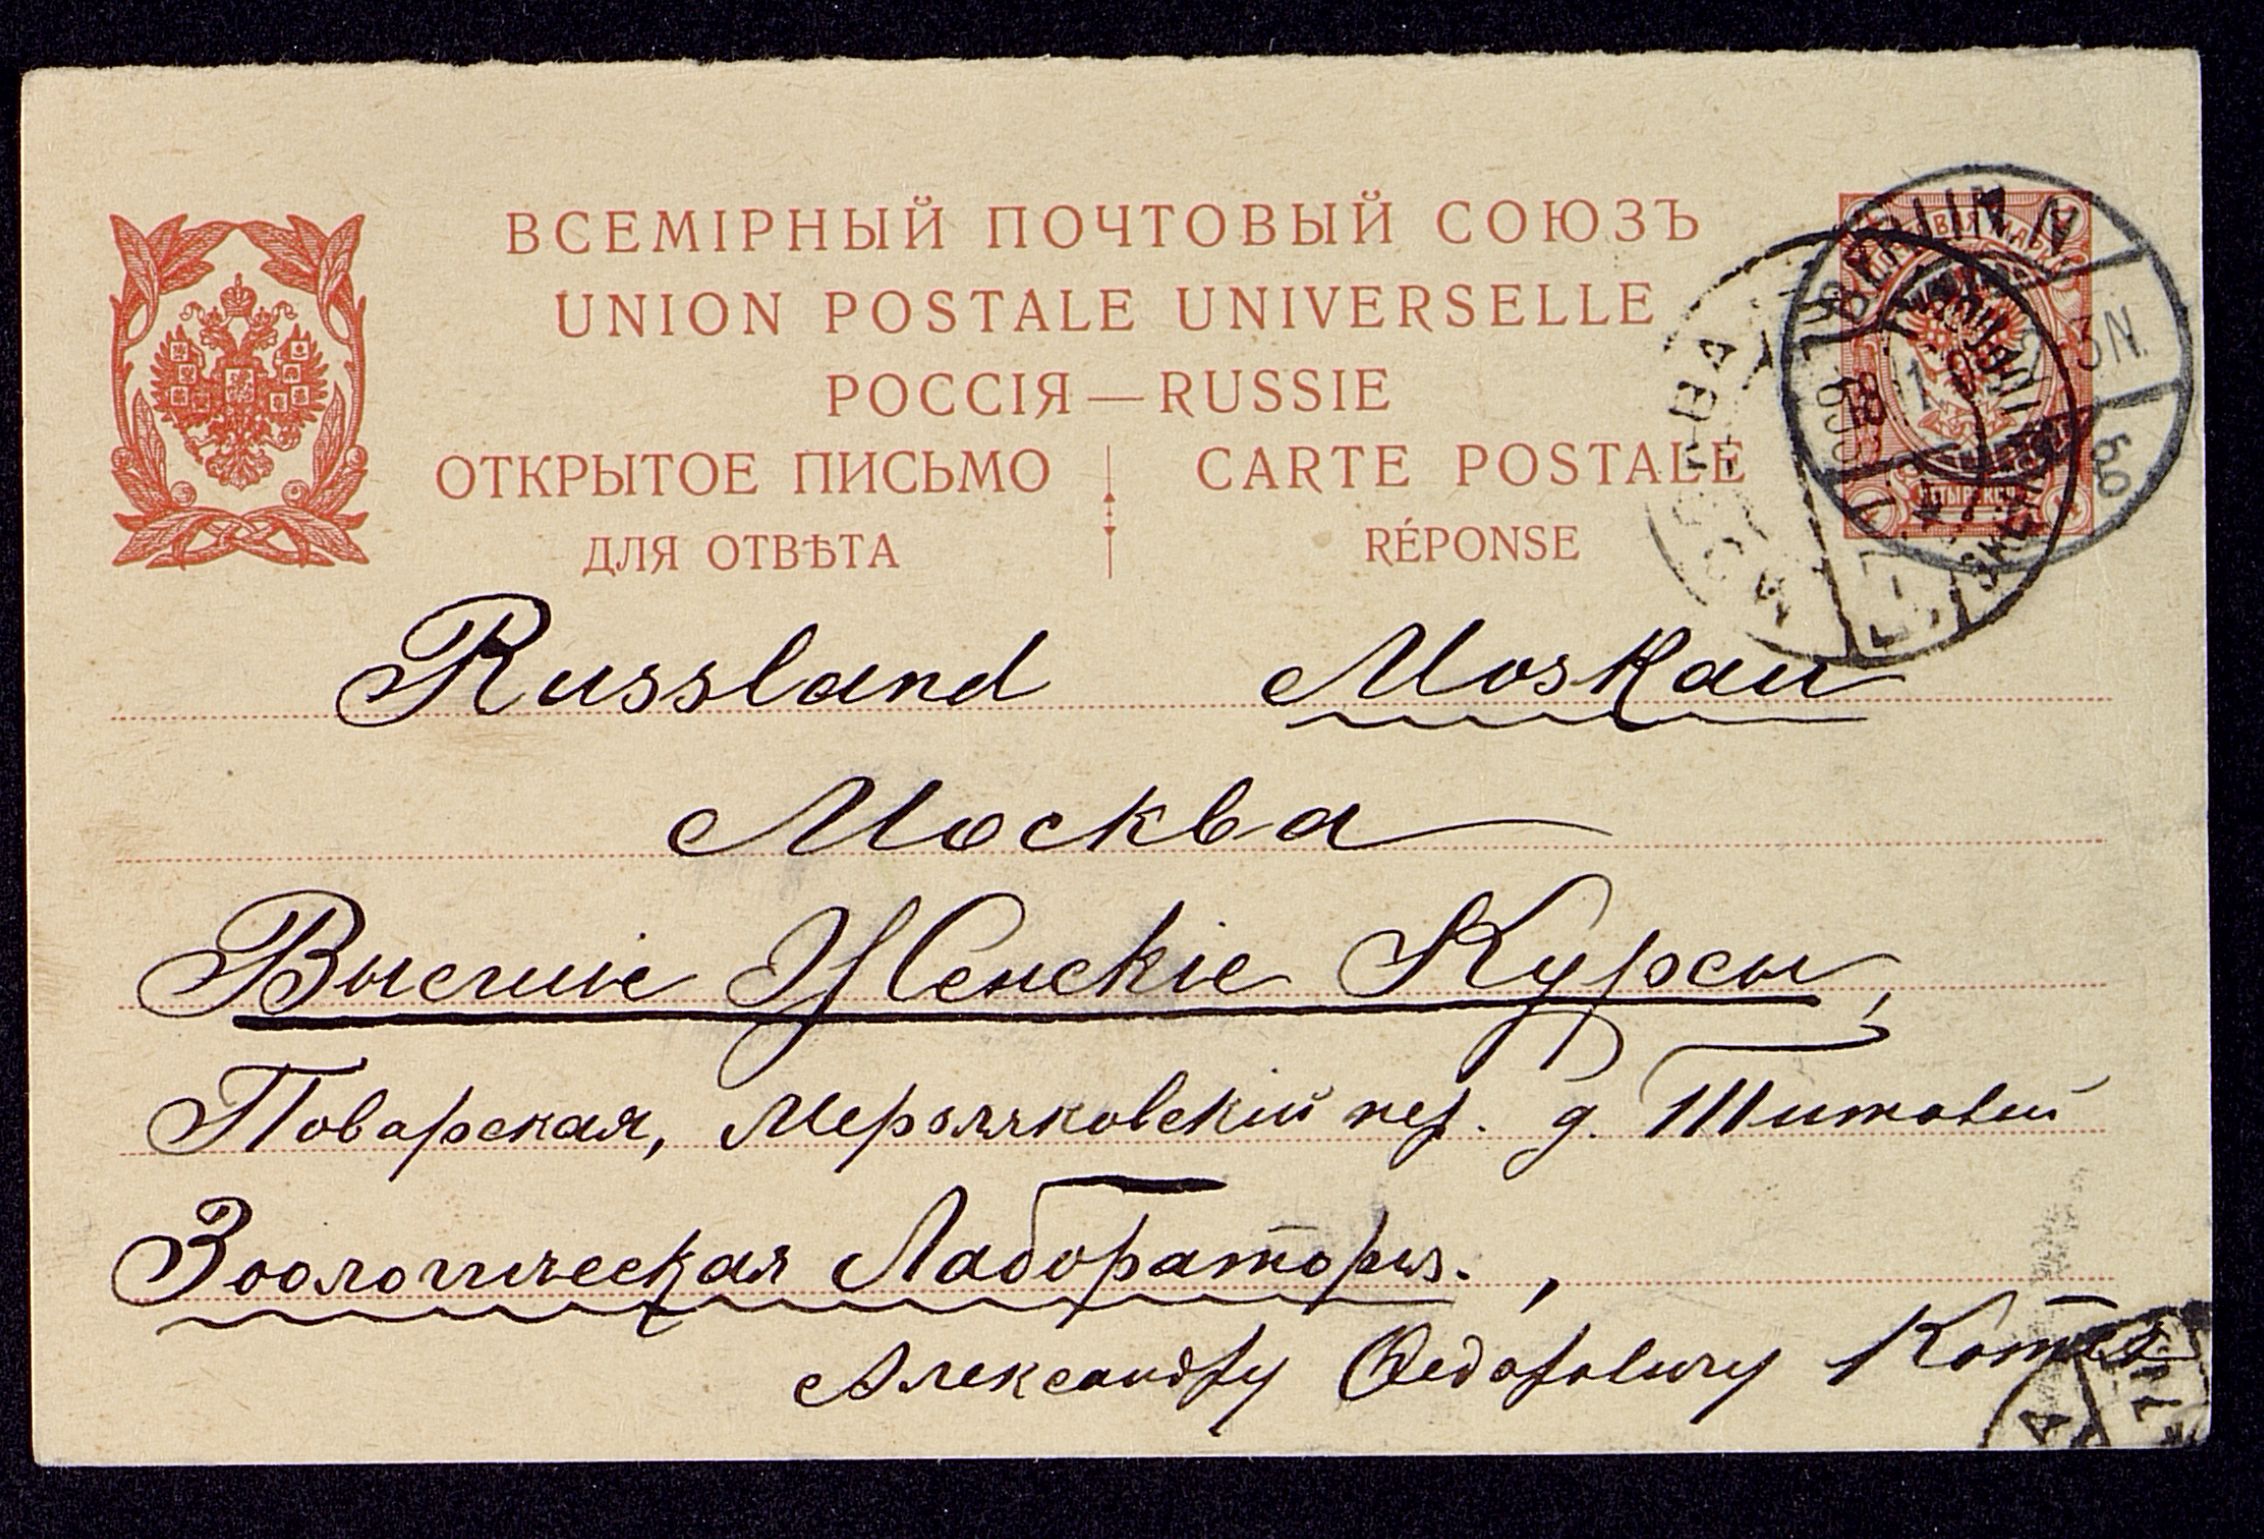 ВСЕМІРНЫЙ ПОЧТОВЫЙ СОЮЗЪ
UNION POSTALE UNIVERSELLE
РОССІЯ — RUSSIE
ОТКРЫТОЕ ПИСЬМО
ДЛЯ ОТВѢТА
CARTE POSTALE
RÉPONSE
BERLIN N
3 N.
МОСКВА
Russland Moskau
Москва
Высшіе Женскіе Курсы,
Поварская, Мерзляковскій пер. д.
Зоологическая Лаборатория.,
Александру Федоровичу Котсъ